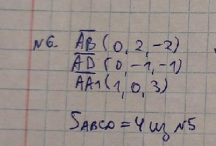 №6. AB (0, 2, -2)
AD (0, -1, -1)
AA1 (1, 0, 3)
SABCD = 4 из №5